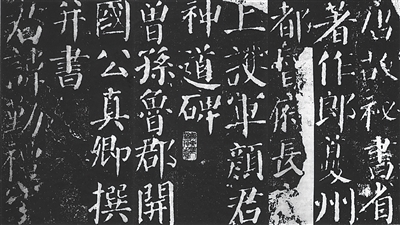 唐故秘書省
著作郎夔州
都督府長
上護軍顏君
神道碑
曾孫魯郡開
國公真卿撰
并書
君諱勤禮字